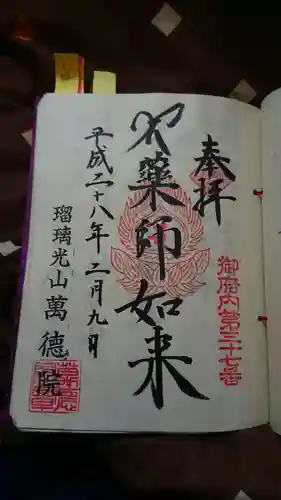 奉拝
御府内第三十七番
薬師如来
平成二十八年二月九日
瑠璃光山萬徳院